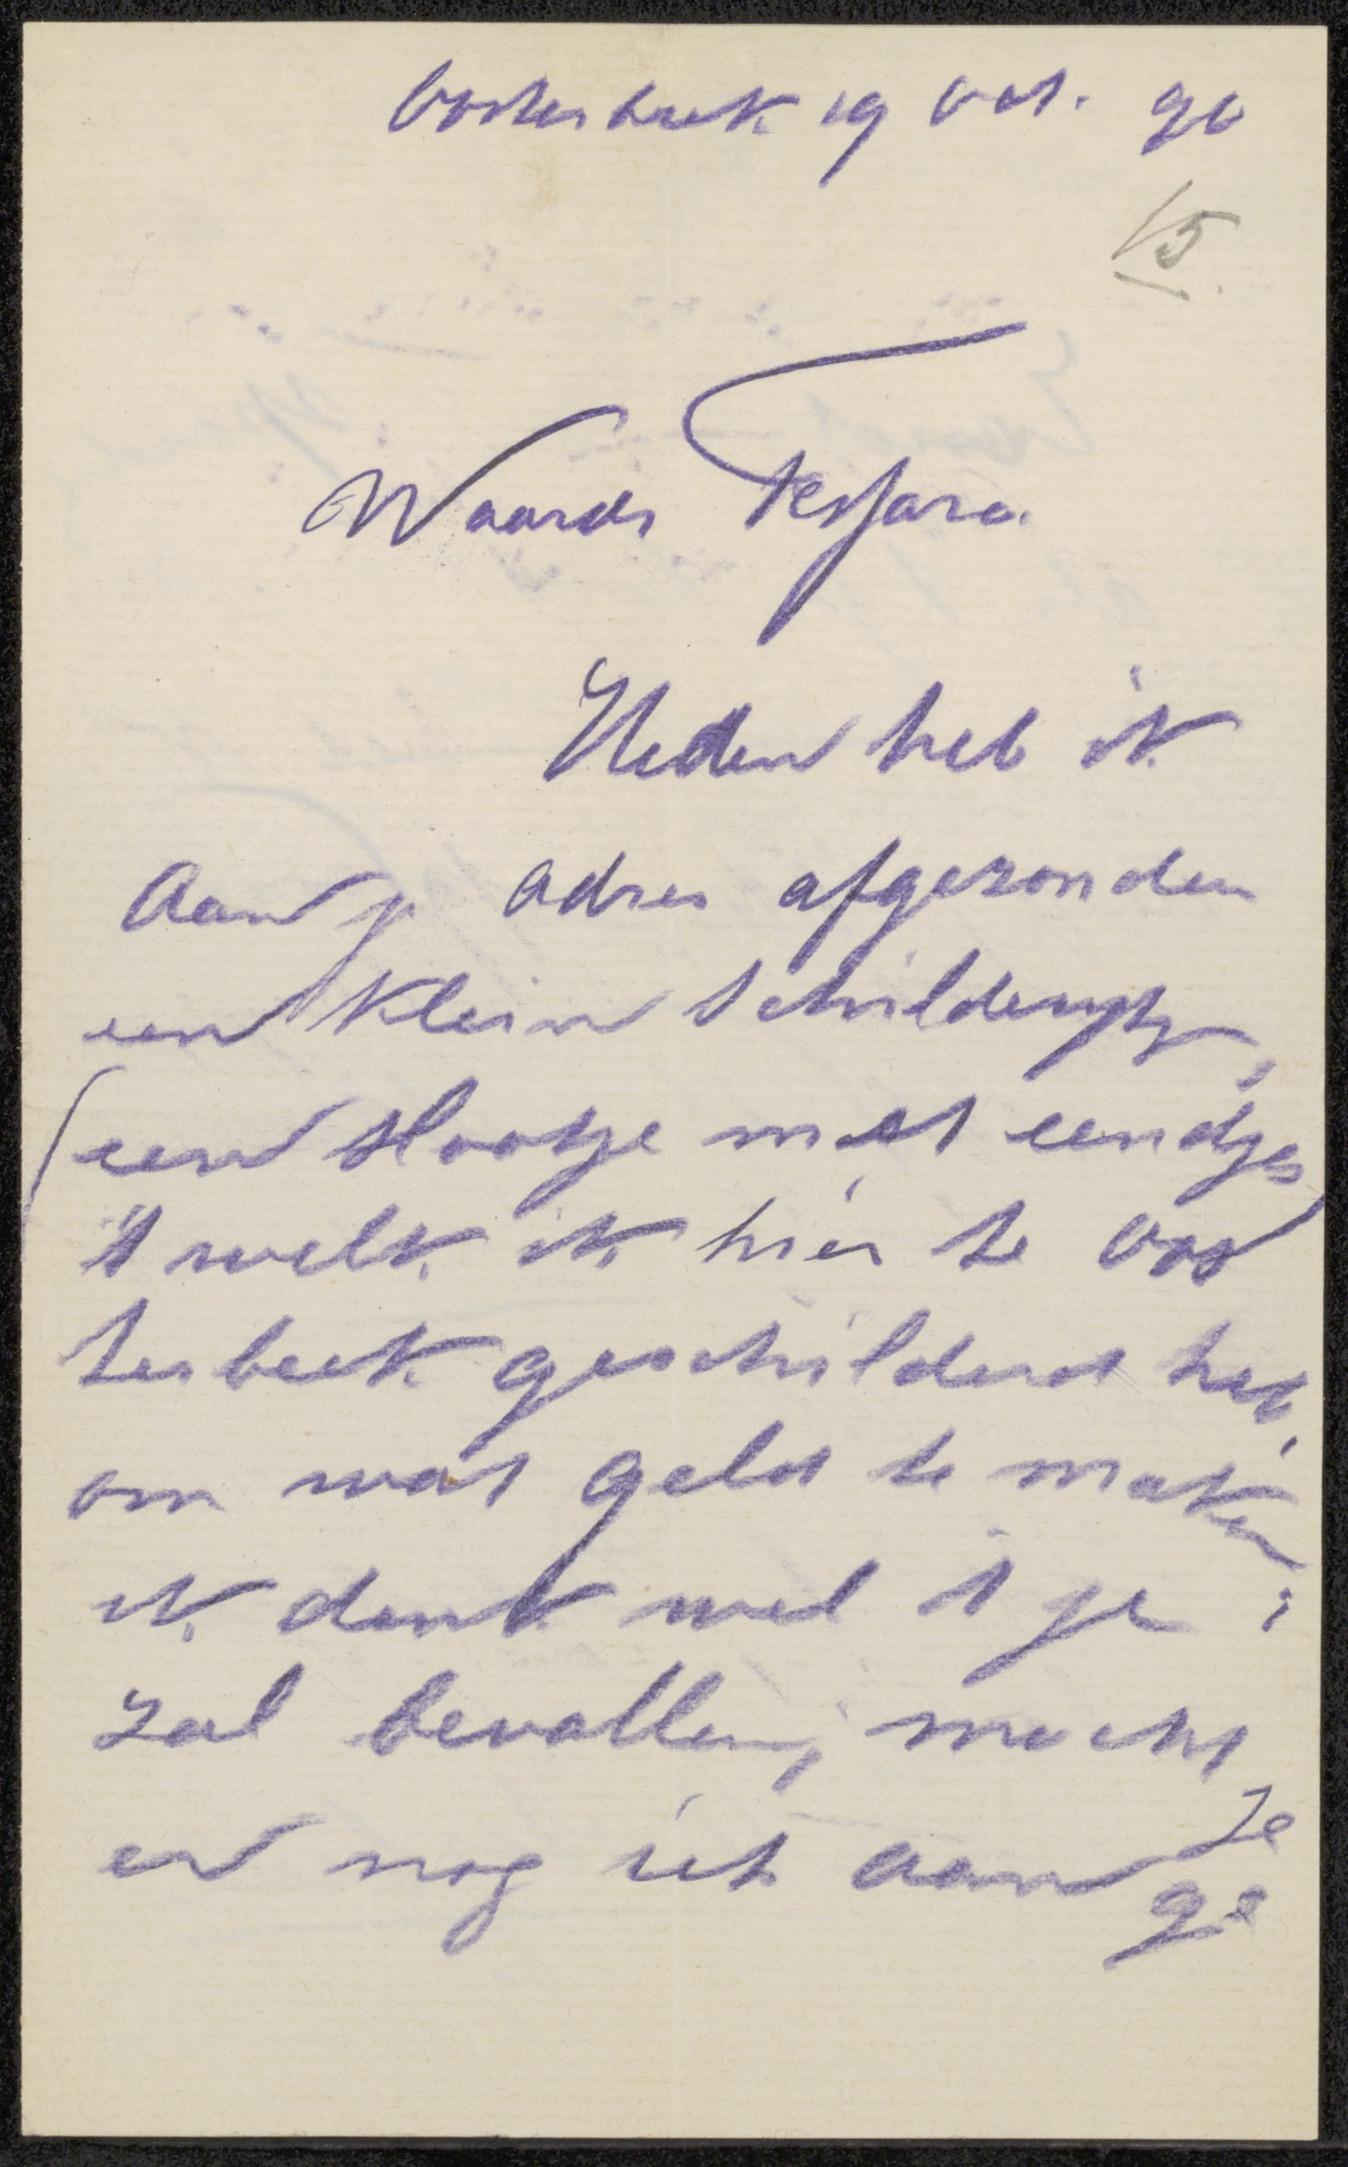 Oosterbeek 19 Oct. 90
15
Waarde Tessaro
Heden heb ik
aan je adres afgezonden
een klein schilderytje,
(een slootje met eendjes)
't welk ik hier te Oos
terbeek geschilderd heb,
om wat geld te maken;
ik denk wel 't je
zal bevallen, mocht
er nog iets aan te
ge